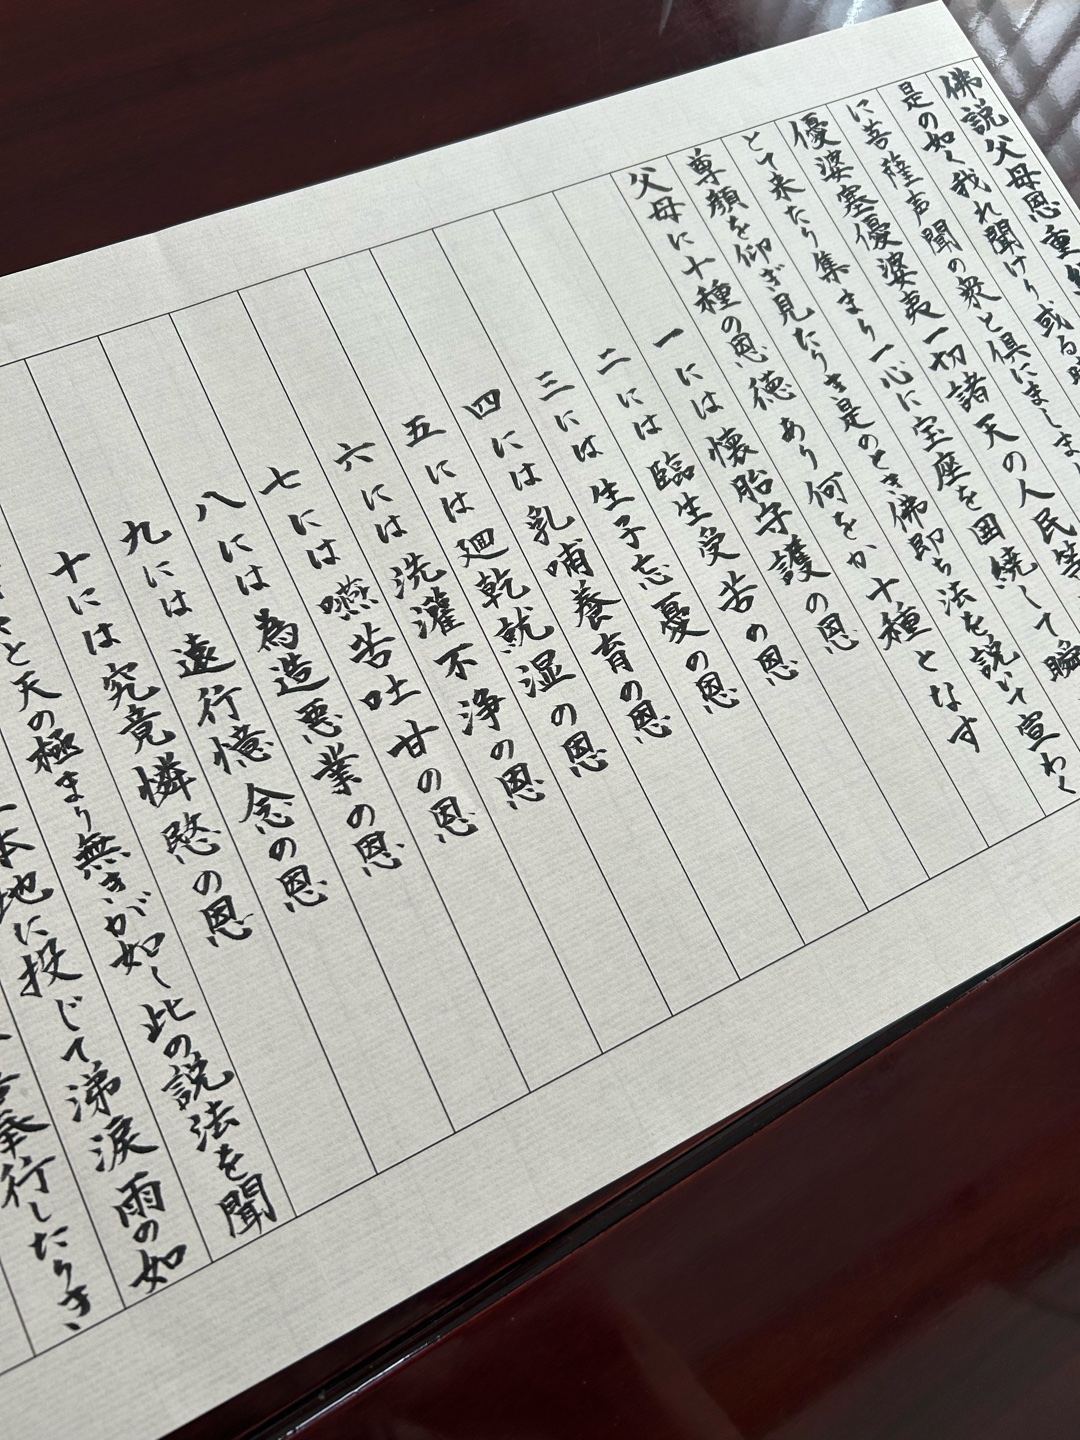 佛説父母恩重
是の如く我れ聞けり或る時
に菩薩声聞の衆と倶にまし
優婆塞優婆夷一切諸天の人民等
とて来たり集まり一心に宝座を囲繞して瞬
尊顔を仰ぎ見たりき是のとき佛即ち法を説いて宣わく
父母に十種の恩徳あり何をか十種となす
一には懐胎守護の恩
二には臨生受苦の恩
三には生子忘憂の恩
四には乳哺養育の恩
五には廻乾就湿の恩
六には洗灌不浄の恩
七には嚥苦吐甘の恩
八には為造悪業の恩
九には遠行憶念の恩
十には究竟憐愍の恩
と天の極まり無きが如し此の説法を聞
地に投じて涕涙雨の如
奉行したりき